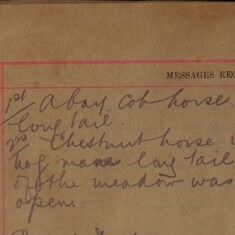 MESSAGES RE
1st A bay cob horse,
long tail.
2nd Chestnut horse,
hog mane long tail
of the meadow was
open.